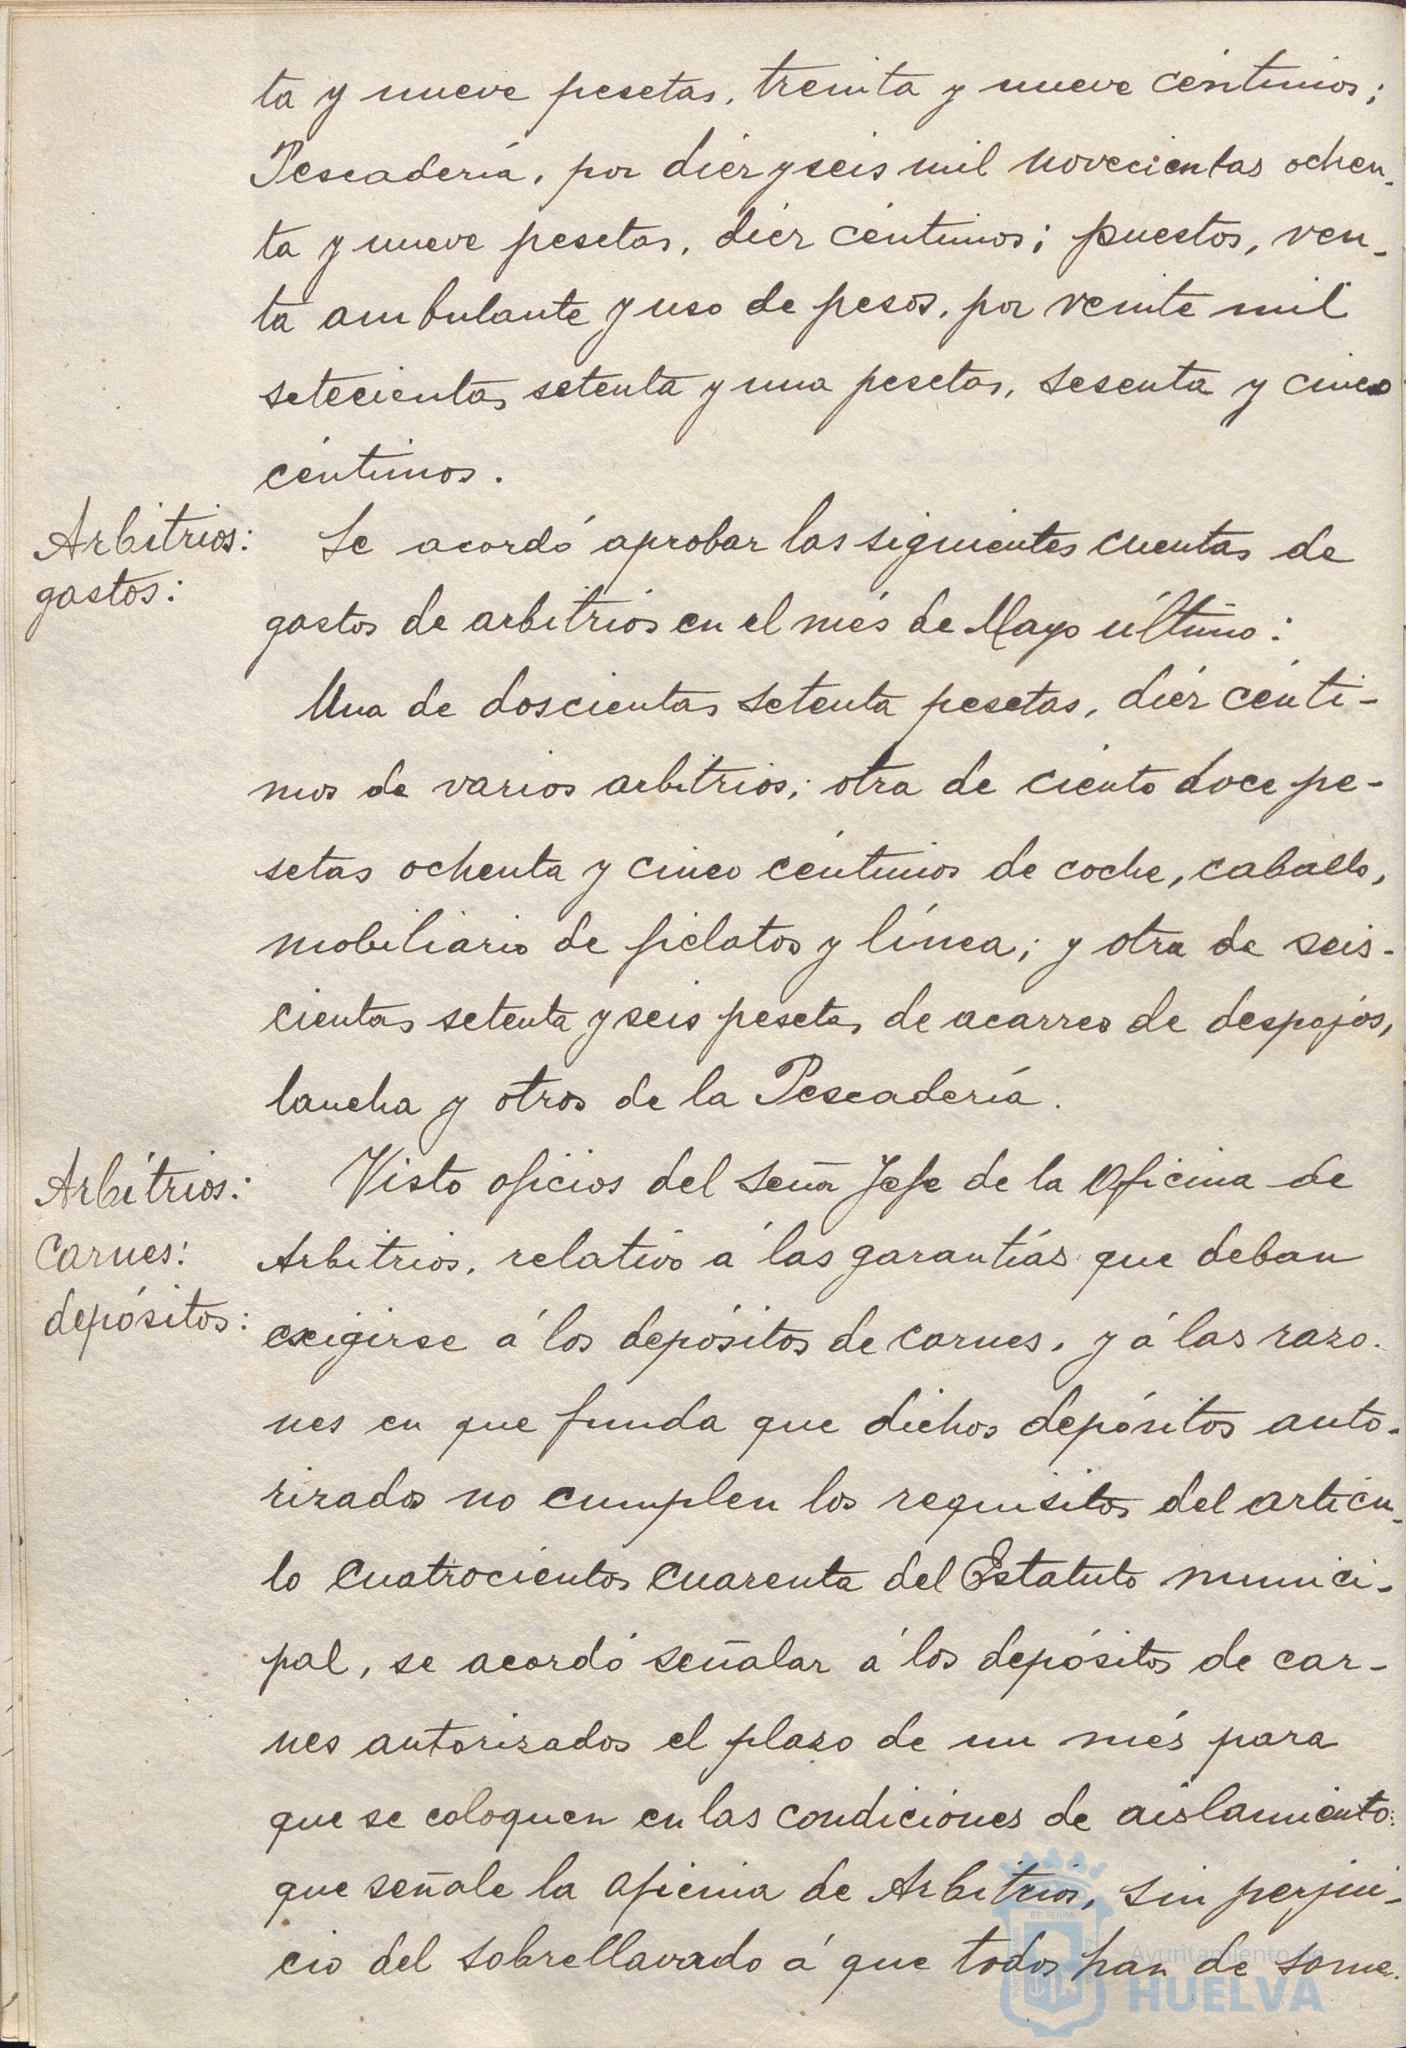 ta y nueve pesetas, treinta y nueve céntimos;
Pescadería, por diez y seis mil novecientas ochen-
ta y nueve pesetas, diez céntimos; puestos, ven-
ta ambulante y uso de pesos, por veinte mil
setecientas setenta y una pesetas, sesenta y cinco
céntimos.
Arbitrios:
gastos:
Se acordó aprobar las siguientes cuentas de
gastos de arbitrios en el més de Mayo último:
Una de doscientas setenta pesetas, diéz cénti-
mos de varios arbitrios; otra de ciento doce pe-
setas ochenta y cinco céntimos de coche, caballo,
mobiliario de fielatos y línea; y otra de seis-
cientas setenta y seis pesetas de acarreo de despojos,
lancha y otros de la Pescadería.
Arbitrios:
Carnes:
depósitos:
Visto oficios del señor Jefe de la Oficina de
Arbitrios, relativo á las garantías que deban
exigirse á los depósitos de carnes, y á las razo-
nes en que funda que dichos depósitos auto-
rizados no cumplen los requisitos del artícu-
lo cuatrocientos cuarenta del Estatuto munici-
pal, se acordó señalar á los depósitos de car-
nes autorizados el plazo de un més para
que se coloquen en las condiciones de aislamiento
que señale la oficina de Arbitrios, sin perjui-
cio del sobrellavado á que todos han de some-
Ayuntamiento de
HUELVA